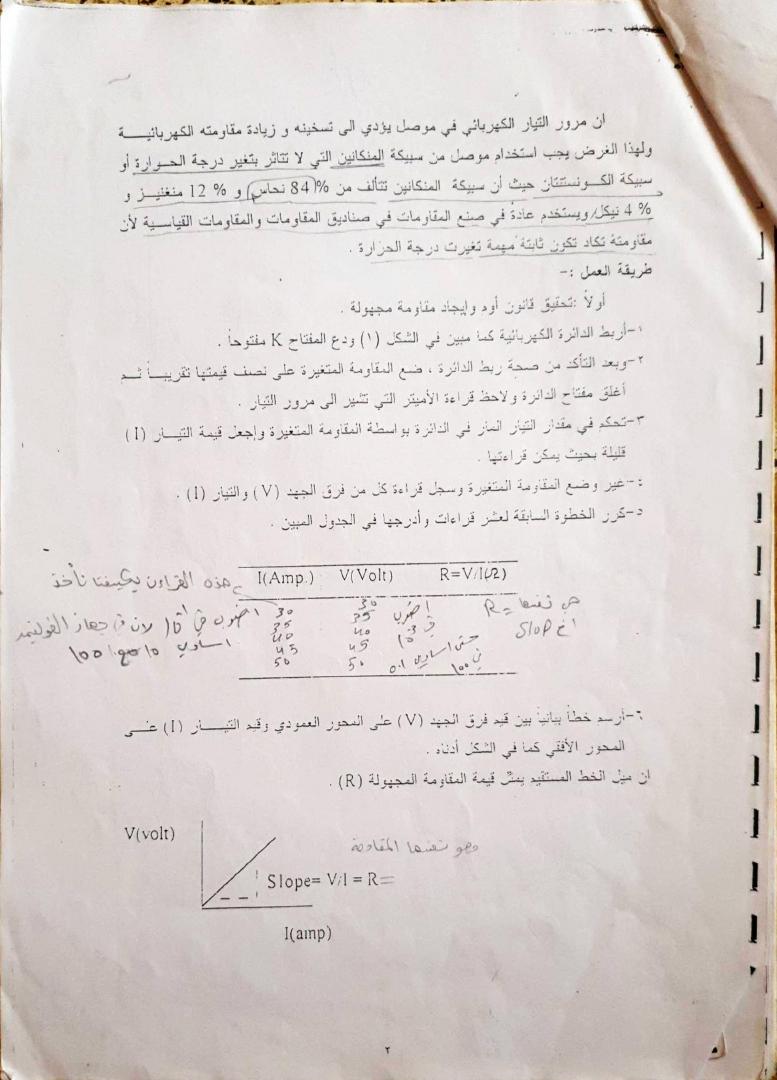 ان مرور التيار الكهربائي في موصل يؤدي الى تسخينه و زيادة مقاومته الكهربائية
ولهذا الغرض يجب استخدام موصل من سبيكة المنكانين التي لا تتاثر بتغير درجة الحرارة أو
سبيكة الكونستنتان حيث أن سبيكة المنكانين تتألف من 84% نحاس و 12 % منغنيز و
4 % نيكل ويستخدم عادة في صنع المقاومات في صناديق المقاومات والمقاومات القياسية لأن
مقاومتة تكاد تكون ثابتة مهمة تغيرت درجة الحرارة .
طريقة العمل :-
أولاً :تحقيق قانون أوم وإيجاد مقاومة مجهولة .
١-أربط الدائرة الكهربائية كما مبين في الشكل (١) ودع المفتاح K مفتوحاً .
٢-وبعد التأكد من صحة ربط الدائرة ، ضع المقاومة المتغيرة على نصف قيمتها تقريباً ثم
أغلق مفتاح الدائرة ولاحظ قراءة الأميتر التي تشير الى مرور التيار .
٣-تحكم في مقدار التيار المار في الدائرة بواسطة المقاومة المتغيرة وإجعل قيمة التيار (I)
قليلة بحيث يمكن قراءتها .
٤-غير وضع المقاومة المتغيرة وسجل قراءة كل من فرق الجهد (V) والتيار (I) .
٥-كرر الخطوة السابقة لعشر قراءات وأدرجها في الجدول المبين .
I(Amp.) V(Volt) R=V/I(Ω)
هذه القراءن
30 30 اضرب
35 35 في
40 40 10³
45 45 حتى اساوي
50 50 0.1 في 100
هي نفسها R=
Slop
٦-أرسم خطاً بيانياً بين قيم فرق الجهد (V) على المحور العمودي وقيم التيار (I) على
المحور الأفقي كما في الشكل أدناه .
ان ميل الخط المستقيم يمثل قيمة المقاومة المجهولة (R) .
V(volt)
وهو نفسها المقاومة
Slope= V/I = R=
I(amp)
٢